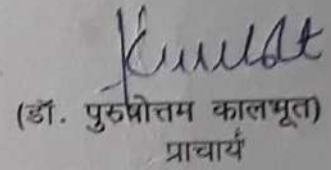 (डॉ. पुरुषोत्तम कालभूत)
प्राचार्य